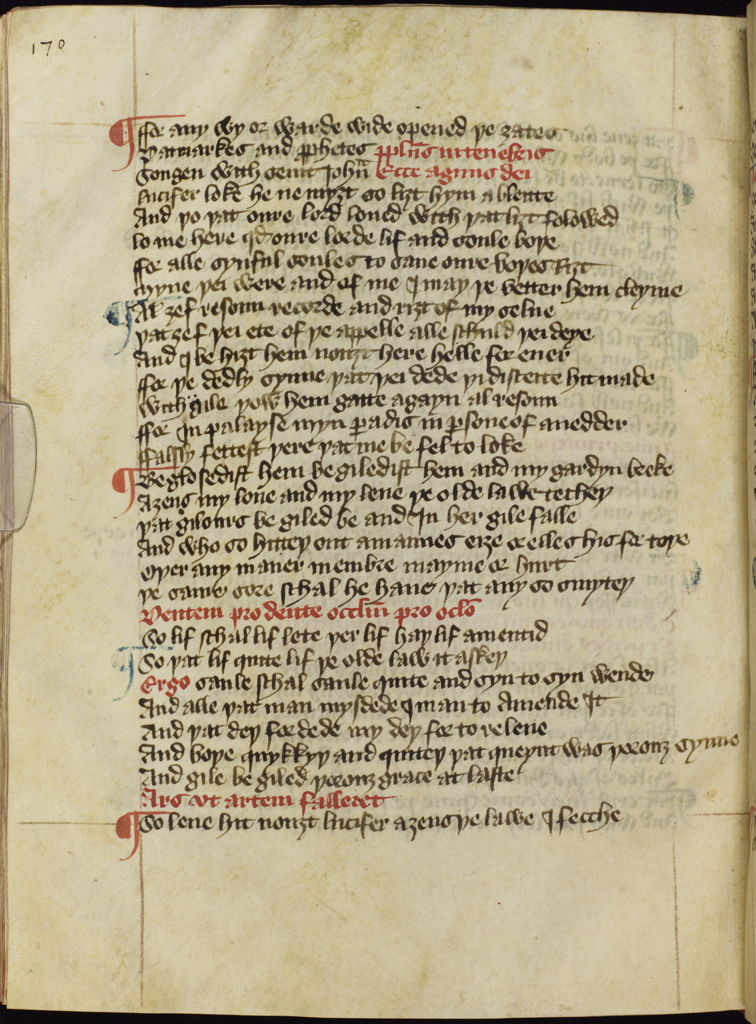 170
ffor any wy or warde wide opened þe ȝates
Patriarkes and pphetes pplus in tenebris
Songen with seint Johū Ecce agnus dei
lucifer loke he ne myȝt so liȝt hym ablente
And þo þat oure lord loued with þat liȝt folowed
lo me here qd oure lorde lif and soule boþe
ffor alle synful soules to saue oure boþes riȝt
Myne þei were and of me I may þe better hem cleyme
Al ȝef resoun recorde and riȝt of my selue
þat ȝef þei ete of þe appelle alle schuld þei deye
And I be hiȝt hem nouȝt here helle for euer
ffor þe dedly synne þat þei dede þi disceite hit made
with gile þow hem gatte agayn al resoun
ffor In palayse myn padis in psone of an edder
ffalsly fettest þere þat me be fel to loke
Be glosedist hem be giledist hem and my gardyn breke
Aȝens my loue and my leue þe olde lawe techeþ
þat gilours be giled be and In her gile falle
And who so hitteþ out a mannes eiȝe or elles his for toþe
oþer any maner membre mayme or hurt
þe same sore schal he haue þat any so smyteþ
Dentem pro dente occlm̄ pro oclo
So lif schal lif lete þer lif haþ lif amentid
So þat lif quite lif þe olde law it askeþ
Ergo saule schal saule quite and syn to syn wende
And alle þat man mysdede I man to Amende It
And þat deþ for dede my deþ for to releue
And boþe quykkyþ and quiteþ þat queynt was þorouȝ synne
And gile be giled þorouȝ grace at laste
Ars vt artem falleret
So leue hit nouȝt lucifer aȝens þe lawe I fecche